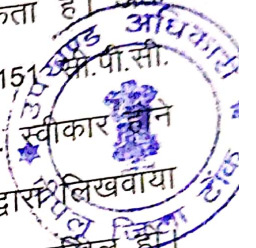 कता है।
151 सी.पी.सी.
स्वीकार होने
द्वारा लिखवाया
उपखण्ड अधिकारी
जिला टोंक